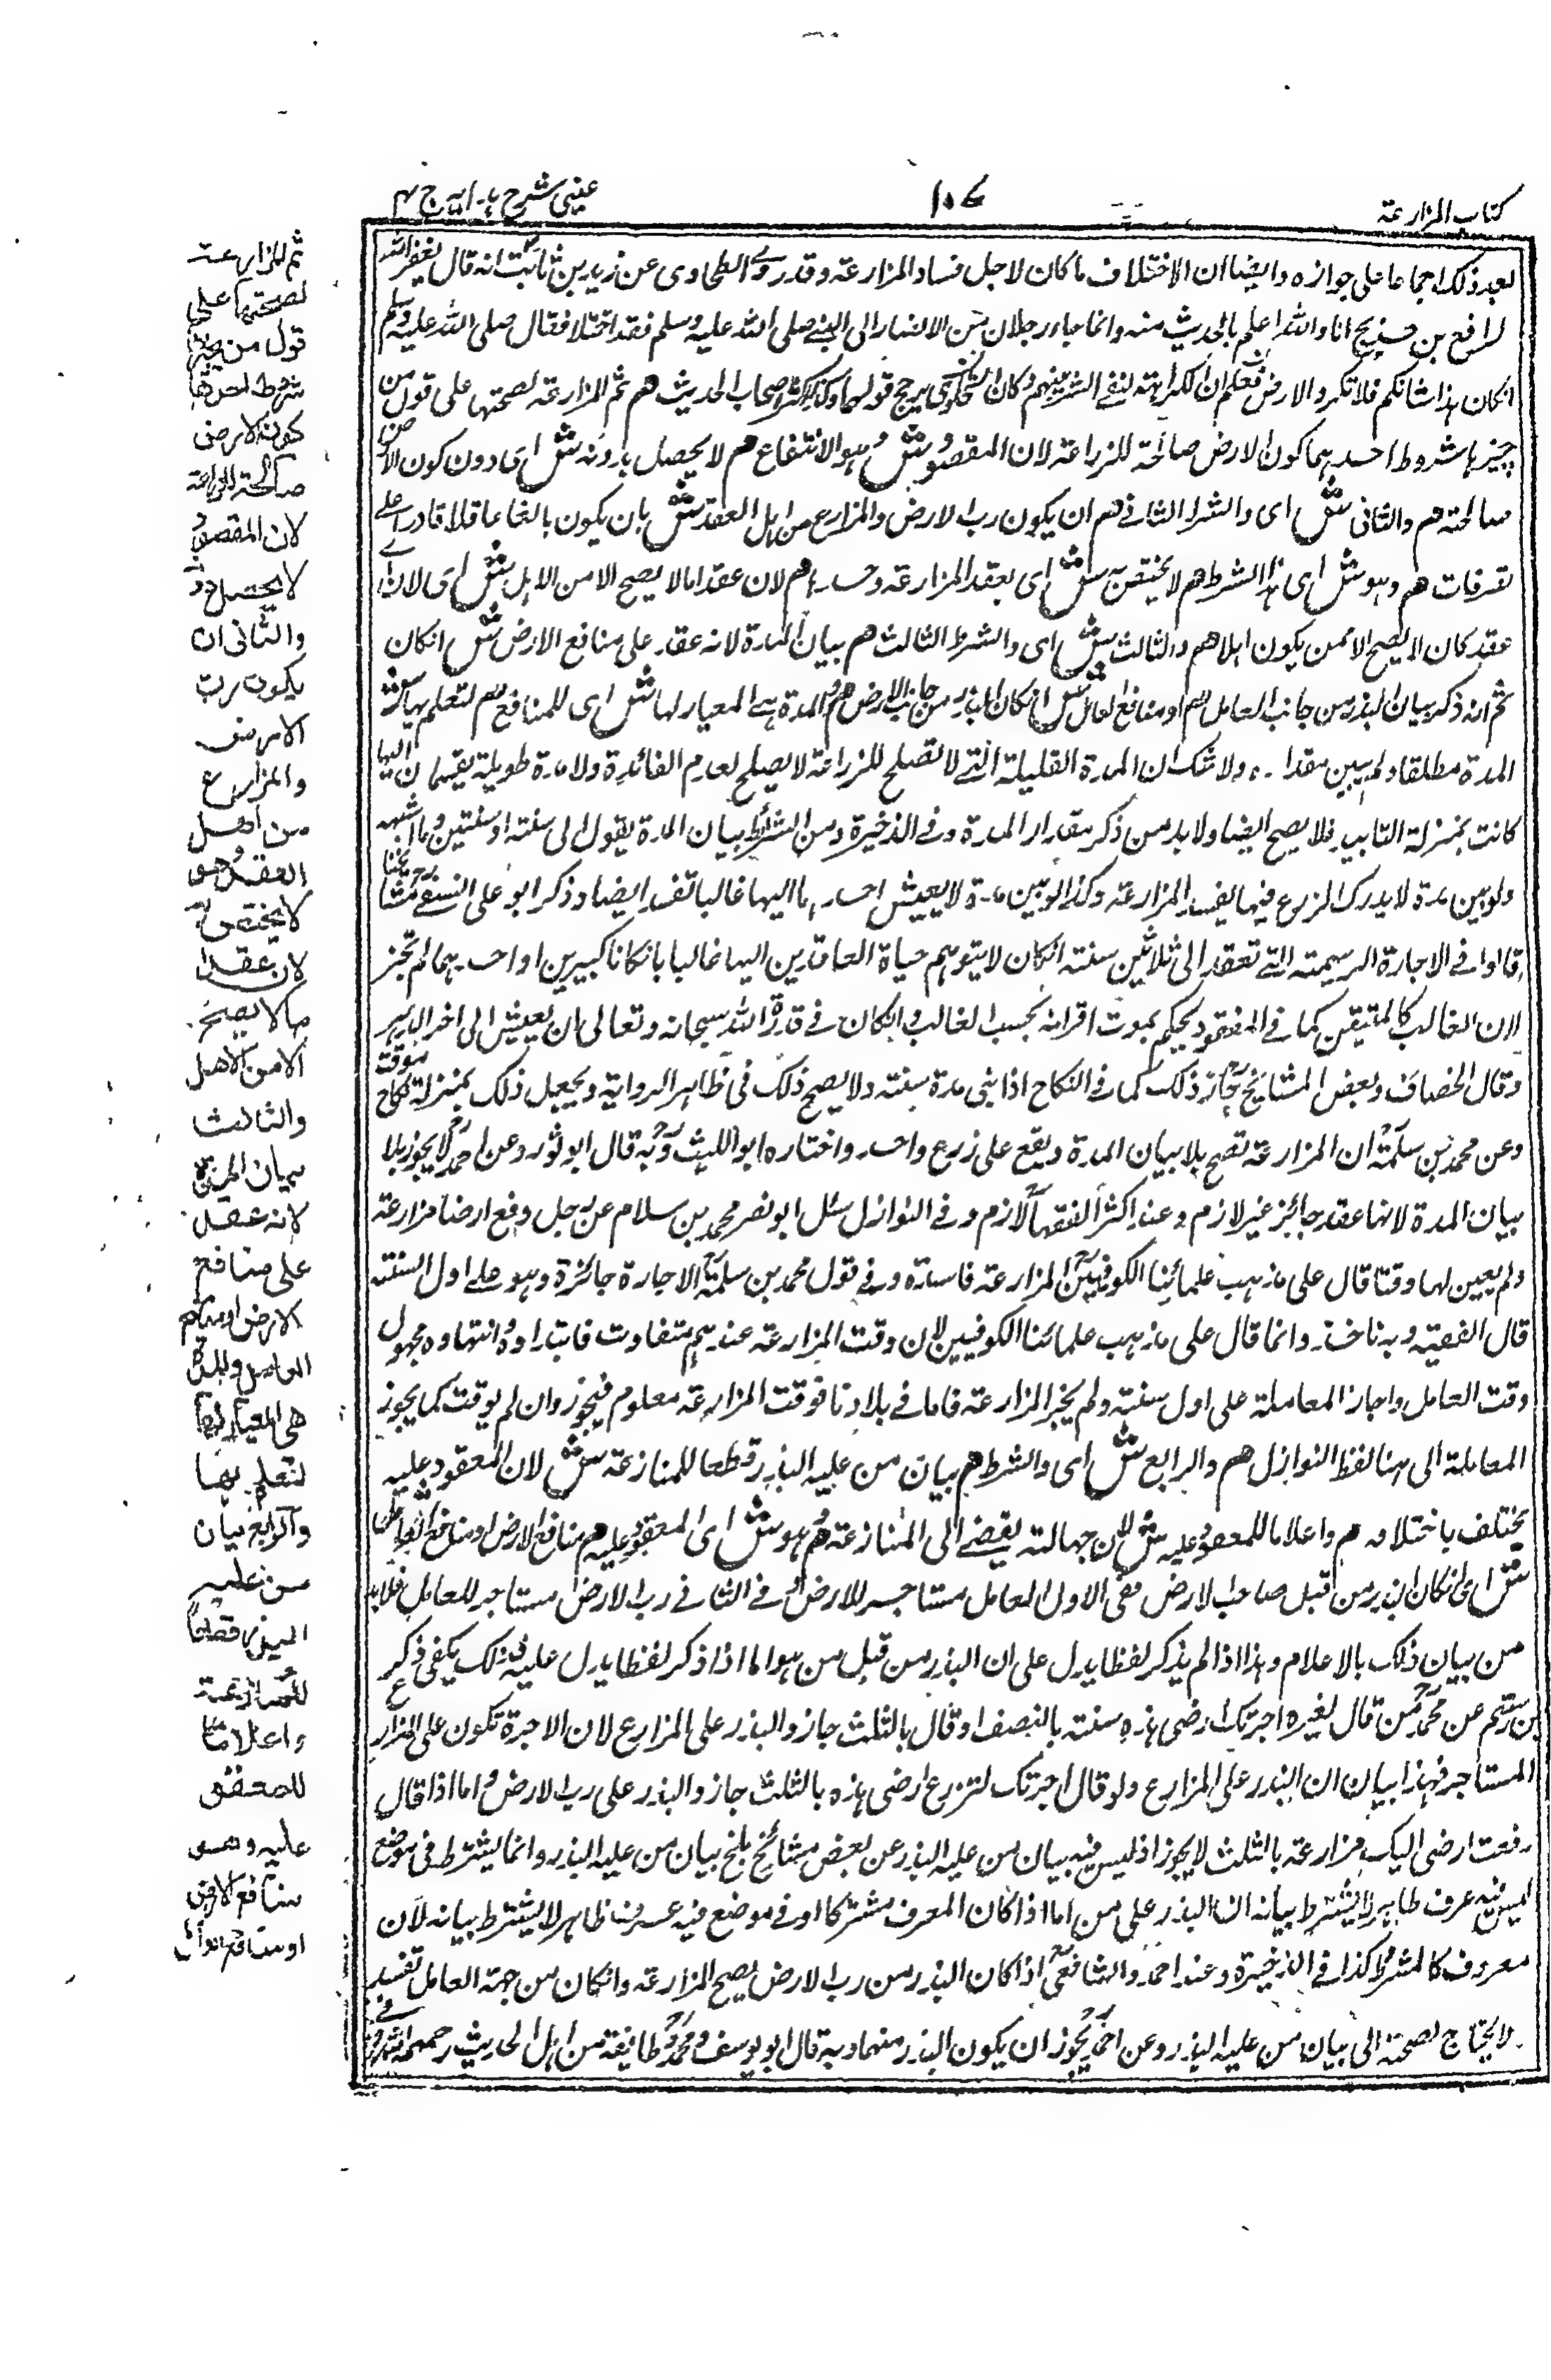 كتاب المزارعة
١٠٧
عينى شرح هداية ج ٤
بعد ذلك اجماعا على جوازه وايضا ان الاختلاف ما كان لاجل فساد المزارعة وقد روى الطحاوى عن زيد بن ثابت انه قال يغفر الله
لرافع بن خديج انا والله اعلم بالحديث منه وانما جاء رجلان من الانصار الى النبى صلى الله عليه وسلم فقد اختلا فقال صلى الله عليه وسلم
انكان هذا شانكم فلا تكروا الارض فعلم ان الكراهة لنفى الشر بينهم وكان الطحاوى يرجح قولهما وكذا اكثر اصحاب الحديث هم ثم المزارعة لصحتها على قول من
يجيزها شروط احدهما كون الارض صالحة للزراعة لان المقصود ش وهو الانتفاع هم لا يحصل بدونه ش اى دون كون الارض
صالحة هم والثانى ش اى والشرط الثانى هم ان يكون رب الارض والمزارع من اهل العقد ش بان يكون بالغا عاقلا قادرا على
تصرفات هم وهو ش اى هذا الشرط هم لا يختص به ش اى بعقد المزارعة وحده هم لان عقدا ما لا يصح الا من الاهل ش اى لان اى
عقد كان لا يصح الا ممن يكون اهلا هم والثالث ش اى والشرط الثالث هم بيان المدة لانه عقد على منافع الارض ش انكان
ثم انه ذكر بيان البذر من جانب العامل هم او منافع العامل ش انكان البذر من جانب الارض هم والمدة هى المعيار لها ش اى للمنافع هم لتعلم بها ش
المدة مطلقا ولم يبين مقداره ولا شك ان المدة القليلة التى لا تصلح للزراعة لا يصلح لعدم الفائدة ولا مدة طويلة يقيمان اليها
كانت بمنزلة التابيد فلا يصح ايضا ولا بد من ذكر مقدار المدة وفى الذخيرة ومن الشرائط بيان المدة يقول الى سنة او سنتين وما اشبهه
ولو بين مدة لا يدرك الزرع فيها يفسد المزارعة وكذا لو بين مدة لا يعيش احدهما اليها غالبا تفسد ايضا وذكر ابو على النسفى مشايخنا
قالوا فى الاجارة الرسيمة التى تعقد الى ثلاثين سنة انكان لا يتوهم حياة العاقدين اليها غالبا بانكانا كبيرين او احدهما لم تجز
لان الغالب كالمتيقن كما فى المفقود يحكم بموت اقرانه بحسب الغالب وانكان فى قدرة الله سبحانه وتعالى ان يعيش الى اخر الدهر
وقال الخصاف وبعض المشايخ بجواز ذلك كما فى النكاح اذا بنى مدة سنة ولا يصح ذلك فى ظاهر الرواية ويجعل ذلك بمنزلة نكاح موقت
وعن محمد بن سلمة ان المزارعة تصح بلا بيان المدة ويقع على زرع واحد واختاره ابو الليث وبه قال ابو ثور وعن احمد لا يجوز بلا
بيان المدة لانها عقد جائز غير لازم وعند اكثر الفقهاء لازم وفى النوازل سئل ابو نصر محمد بن سلام عن رجل دفع ارضا مزارعة
ولم يعين لها وقتا قال على مذهب علمائنا الكوفيين المزارعة فاسدة وفى قول محمد بن سلمة الاجارة جائزة وهو على اول السنة
قال الفقيه وبه ناخذ وانما قال على مذهب علمائنا الكوفيين لان وقت المزارعة عندهم متفاوت فابتداوه وانتهاوه مجهول
وقت العامل واجاز المعاملة على اول سنة ولم يجز المزارعة فاما فى بلادنا فوقت المزارعة معلوم فيجوز وان لم يوقت كما يجوز
المعاملة الى هنا لفظ النوازل هم والرابع ش اى والشرط هم بيان من عليه البذر قطعا للمنازعة ش لان المعقود عليه
يختلف باختلافه هم واعلاما للمعقود عليه ش لان جهالته يفضى الى المنازعة هم وهو ش اى المعقود عليه هم منافع الارض او منافع العامل
ش اى انكان البذر من قبل صاحب الارض ففى الاول العامل مستاجر للارض وفى الثانى رب الارض مستاجر للعامل فلا بد
من بيان ذلك بالاعلام وهذا اذا لم يذكر لفظا يدل على ان البذر من قبل من هو اما اذا ذكر لفظا يدل عليه فذلك يكفى ذكر
بن رستم عن محمد من قال لغيره اجرتك ارضى هذه سنة بالنصف او قال بالثلث جاز والبذر على المزارع لان الاجرة تكون على المزارع
المستاجر فهذا بيان ان البذر على المزارع ولو قال اجرتك لتزرع ارضى هذه بالثلث جاز والبذر على رب الارض واما اذا قال
دفعت ارضى اليك مزارعة بالثلث لا يجوز اذ ليس فيه بيان من عليه البذر عن بعض مشائخ بلخ بيان من عليه البذر وانما يشترط فى موضع
ليس فيه عرف ظاهر لا يشترط بيانه ان البذر على من اما اذا كان المعرف مشتركا او فى موضع فيه عرف ظاهر لا يشترط بيانه لان
معروف كالمشروط كذا فى الذخيرة وعند احمد والشافعى اذا كان البذر من رب الارض يصح المزارعة وانكان من جهة العامل تفسد
لا يحتاج لصحته الى بيان من عليه البذر وعن احمد يجوز ان يكون البذر منهما وبه قال ابو يوسف ومحمد وطايفة من اهل الحديث رحمهم الله وفى
ثم المزارعة
لصحتها على
قول من يجيزها
شروط احدها
كون الارض
صالحة للزراعة
لان المقصود
لا يحصل دونه
والثانى ان
يكون رب
الارض
والمزارع
من اهل
العقد وهو
لا يختص به
لان عقدا
ما لا يصح
الا من الاهل
والثالث
بيان المدة
لانه عقد
على منافع
الارض او منافع
العامل والمدة
هى المعيار لها
لتعلم بها
والرابع بيان
من عليه
البذر قطعا
للمنازعة
واعلاما
للمعقود
عليه وهو
منافع الارض
او منافع العامل